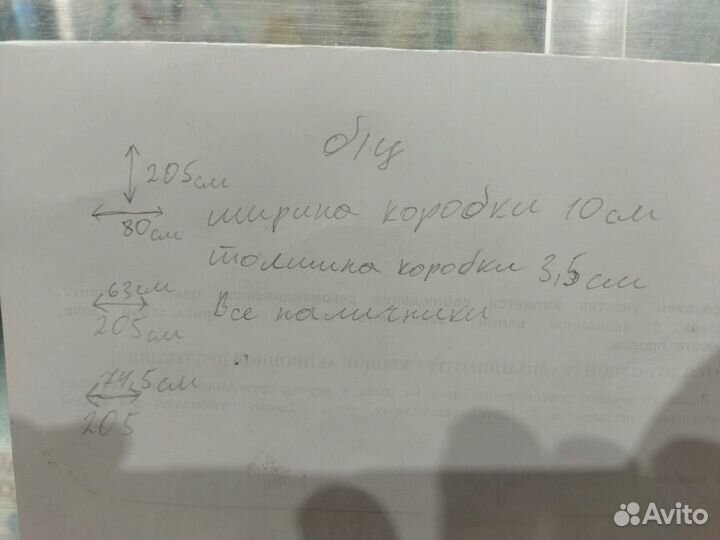 б/ц
205см
80см
ширина коробки 10см
толщина коробки 3,5см
63см
205см
Все наличники
74,5см
205
Avito